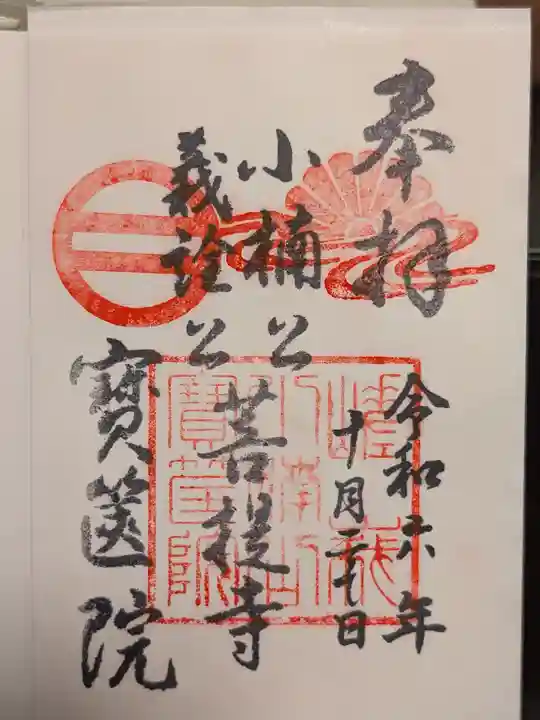 奉拝
令和六年
十月二十七日
小楠公
義詮公
菩提寺
寶篋院